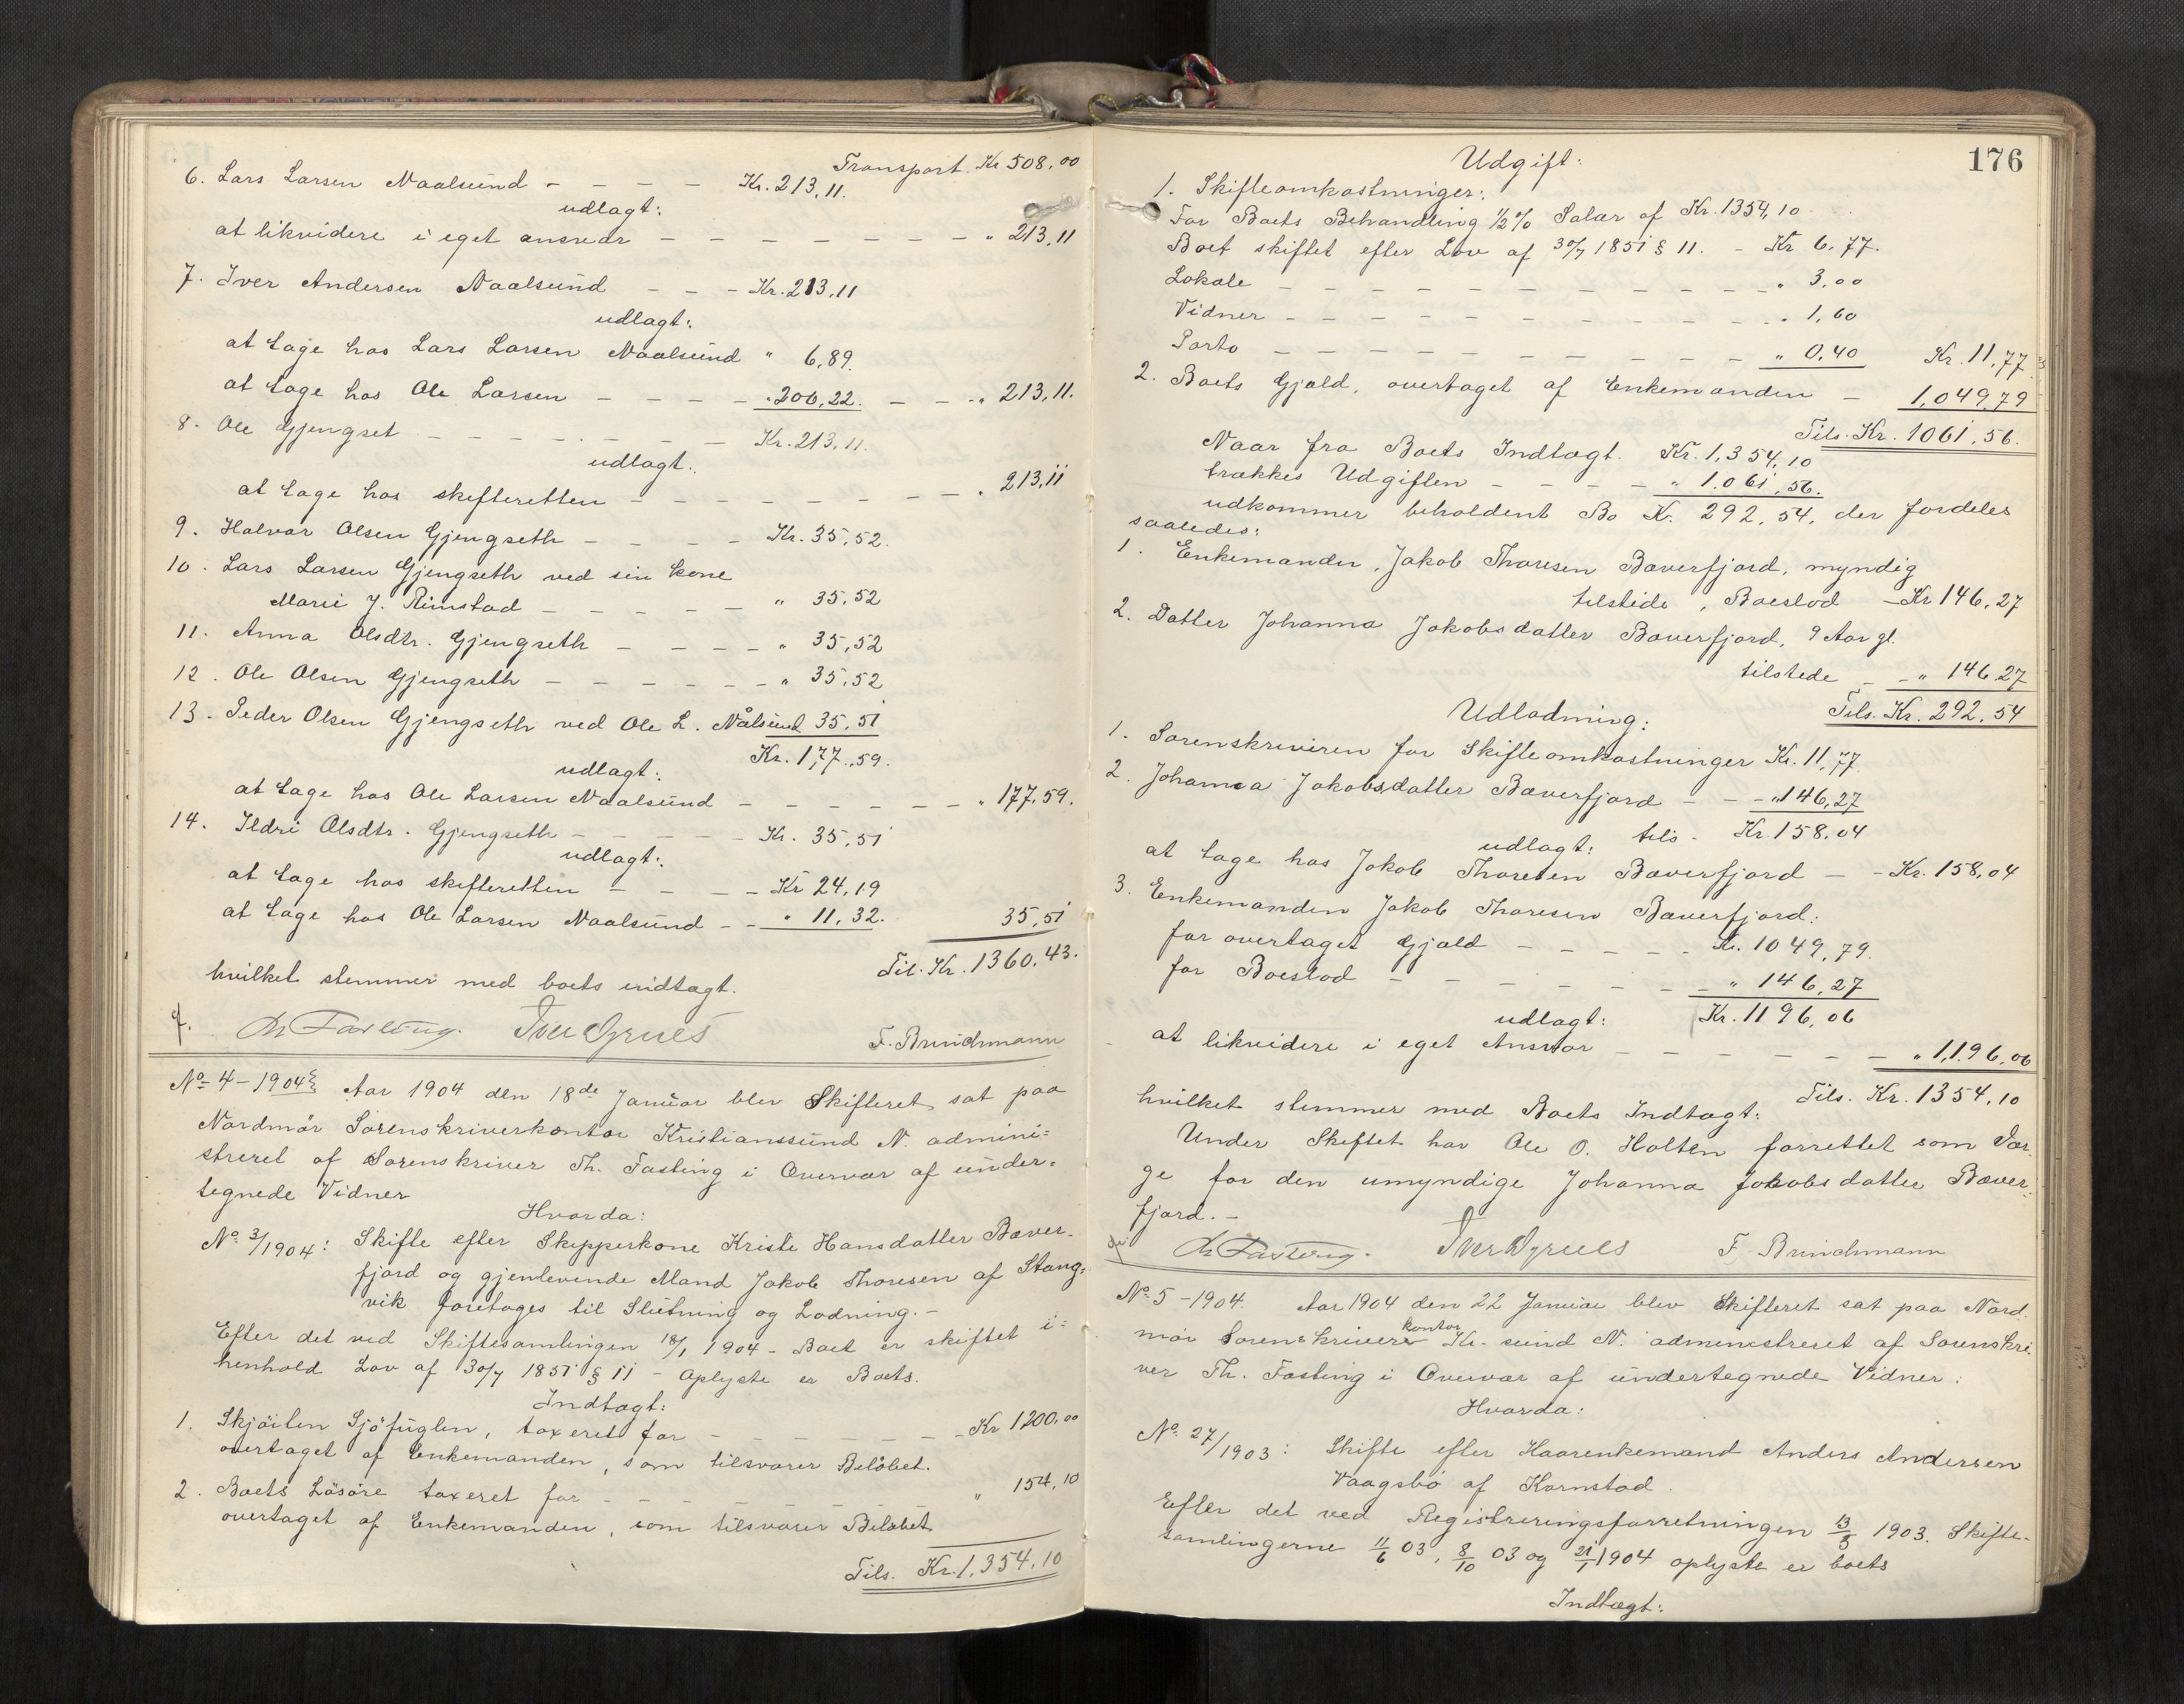 Transport. Kr 508.00
6. Lars Larsen Naalsund - - - - Kr. 213,11.
udlagt:
at likvidere i eget ansvar - - - - - - - " 213,11
7. Iver Andersen Naalsund - - - Kr. 213,11
udlagt:
at tage hos Lars Larsen Naalsund " 6,89.
at tage hos Ole Larsen - - - - " 206,22. - - " 213,11.
8. Ole Gjengset - - - - - - - Kr. 213,11.
udlagt:
at tage hos skifteretten - - - - - - - - " 213,11
9. Halvar Olsen Gjengseth - - - - Kr. 35,52.
10. Lars Larsen Gjengseth ved sin kone
Marie J. Rimstad - - - - - " 35,52
11. Anna Olsdtr. Gjengseth - - - - " 35,52
12. Ole Olsen Gjengseth - - - - - - " 35,52
13. Peder Olsen Gjengseth ved Ole L. Nålsund 35,51
Kr. 177,59.
udlagt:
at tage hos Ole Larsen Naalsund - - - - - - - " 177,59.
14. Ildri Olsdtr. Gjengseth - - - - - Kr. 35,51
udlagt:
at tage hos skifteretten - - - - Kr 24,19
at tage hos Ole Larsen Naalsund - - " 11,32. 35,51
Til. Kr. 1360,43.
hvilket stemmer med boets indtægt.
Th Fasting. Iver Gruel F. Brinchmann
No 4-1904 Aar 1904 den 18de Januar blev Skifteret sat paa
Nordmør Sorenskriverkontor Kristianssund N. admini=
streret af Sorenskriver Th. Fasting i Overvær af under=
tegnede Vidner
Hvorda:
No 3/1904: Skifte efter Skipperkone Kristi Hansdatter Bæver-
fjord og gjenlevende Mand Jakob Thoresen af Stang=
vik foretages til Slutning og Lodning. -
Efter det ved Skiftesamlingen 18/1 1904 - Boet er skiftet i=
henhold Lov af 30/7 1851 § 11 - Oplyste er Boets.
Indtægt:
1. Skjøiten Sjøfuglen, taxeret for - - - - - - - Kr 1200.00
overtaget af Enkemanden, som tilsvarer Beløbet.
2. Boets Løsøre taxeret for - - - - - - - " 154,10
overtaget af Enkemanden, som tilsvarer Beløbet
Tils. Kr. 1,354,10
176
Udgift:
1. Skifteomkostninger:
For Boets Behandling 1/2 % Salær af Kr. 1354,10
Boet skiftet efter Lov af 30/7 1851 § 11. - Kr 6,77.
Lokale - - - - - - - - - - - " 3,00
Vidner - - - - - - - - - - - " 1,60
Porto - - - - - - - - - - - " 0,40 Kr. 11,77
2. Boets Gjæld, overtaget af Enkemanden - 1,049,79
Tils. Kr. 1061,56.
Naar fra Boets Indtægt. Kr. 1,354,10
trækkes Udgiften - - - - " 1.061,56.
udkommer beholdent Bo Kr. 292,54, der fordeles
saaledes:
1. Enkemanden, Jakob Thoresen Bæverfjord, myndig
tilstede, Boeslod - Kr 146,27
2. Datter Johanna Jakobsdatter Bæverfjord, 9 Aar gl.
tilstede - - " 146,27
Tils. Kr. 292,54
Udlodning:
1. Sorenskriveren for Skifteomkostninger Kr. 11,77.
2. Johanna Jakobsdatter Bæverfjord - - - " 146,27
tils - Kr. 158,04
udlagt:
at tage hos Jakob Thoresen Bæverfjord - - Kr. 158,04
3. Enkemanden Jakob Thoresen Bæverfjord:
for overtaget Gjæld - - - - - Kr. 1049,79.
for Boeslod - - - - - - - - " 146,27
Kr. 1196,06
udlagt:
at likvidere i eget Ansvar - - - - - - - " 1,196,06
Tils. Kr. 1354,10
hvilket stemmer med Boets Indtægt:
Under Skiftet har Ole O. Holten forrettet som Vær-
ge for den umyndige Johanna Jakobsdatter Bæver-
fjord. -
Th Fasting. Iver Gruel F. Brinchmann
No 5-1904. Aar 1904 den 22 Januar blev Skifteret sat paa Nord-
mør Sorenskriverkontor Kr.sund N. administreret af Sorenskri-
ver Th. Fasting i Overvær af undertegnede Vidner:
Hvorda:
No 27/1903: Skifte efter Kaarenkemand Anders Andersen
Vaagsbø af Kornstad.
Efter det ved Registreringsforretningen 13/5 1903. Skifte-
samlingerne 11/6 03, 8/10 03 og 21/1 1904 oplyste er boets
Indtægt: